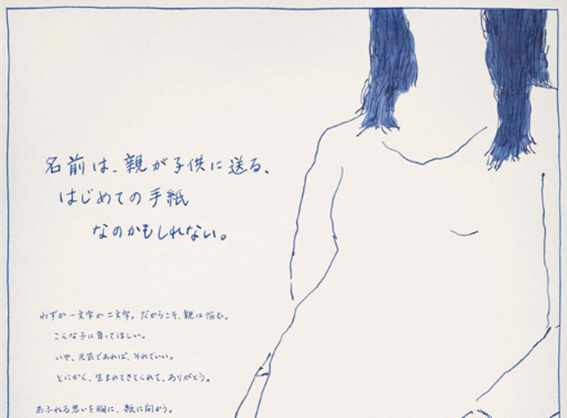 名前は、親が子供に送る、
はじめての手紙
なのかもしれない。
わずか一文字か二文字。だからこそ、親は悩む。
こんな子に育ってほしい。
いや、元気であれば、それでいい。
とにかく、生まれてきてくれて、ありがとう。
あふれる思いを胸に、紙に向かう。